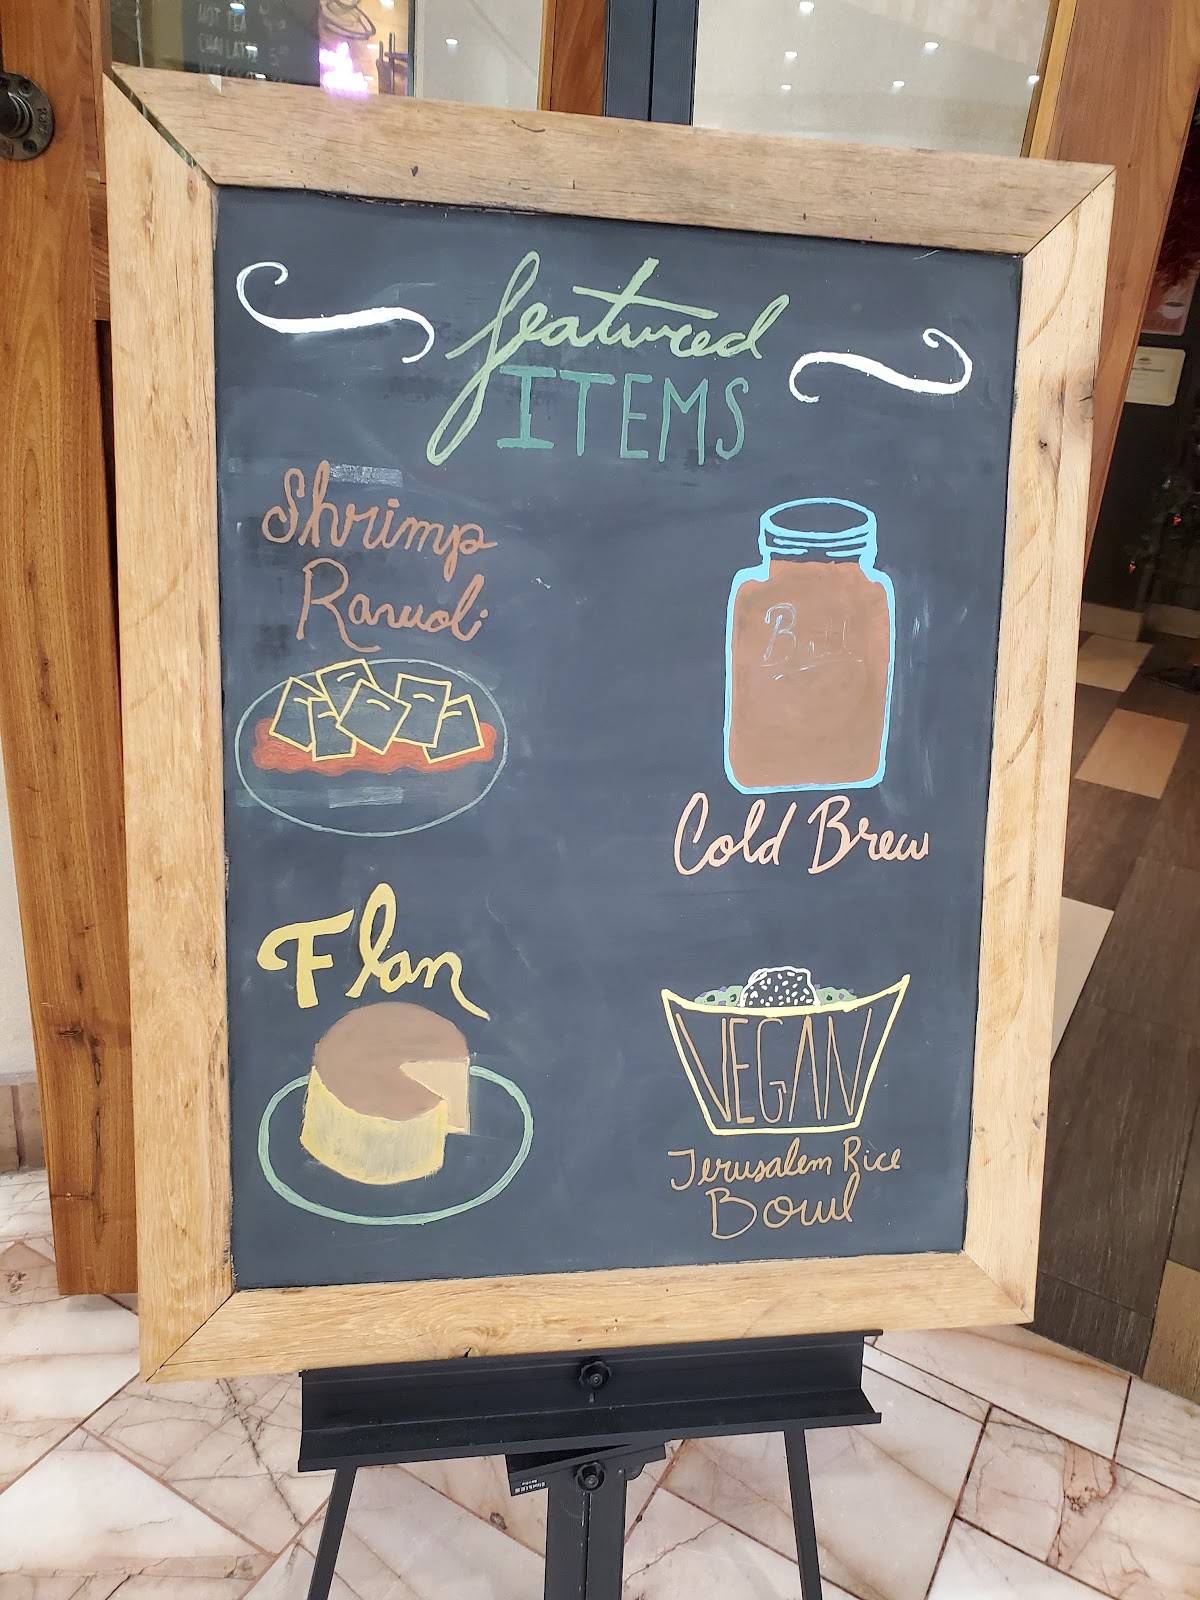 HOT TEA
CHAI LATTE 5
featured
ITEMS
Shrimp
Ravioli
Cold Brew
Flan
VEGAN
Jerusalem Rice
Bowl